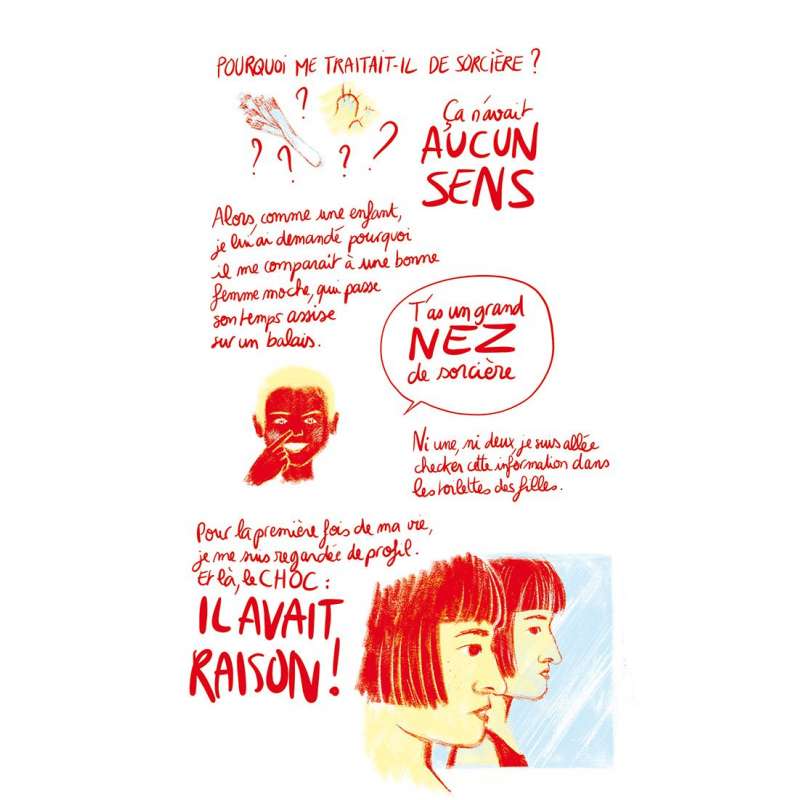 POURQUOI ME TRAITAIT-IL DE SORCIÈRE ?
? ? ? ? ?
Ça n'avait
AUCUN
SENS
Alors, comme une enfant,
je lui ai demandé pourquoi
il me comparait à une bonne
femme moche, qui passe
son temps assise
sur un balais.
T'as un grand
NEZ
de sorcière
Ni une, ni deux, je suis allée
checker cette information dans
les toilettes des filles.
Pour la première fois de ma vie,
je me suis regardée de profil.
Et là, le CHOC :
IL AVAIT
RAISON !